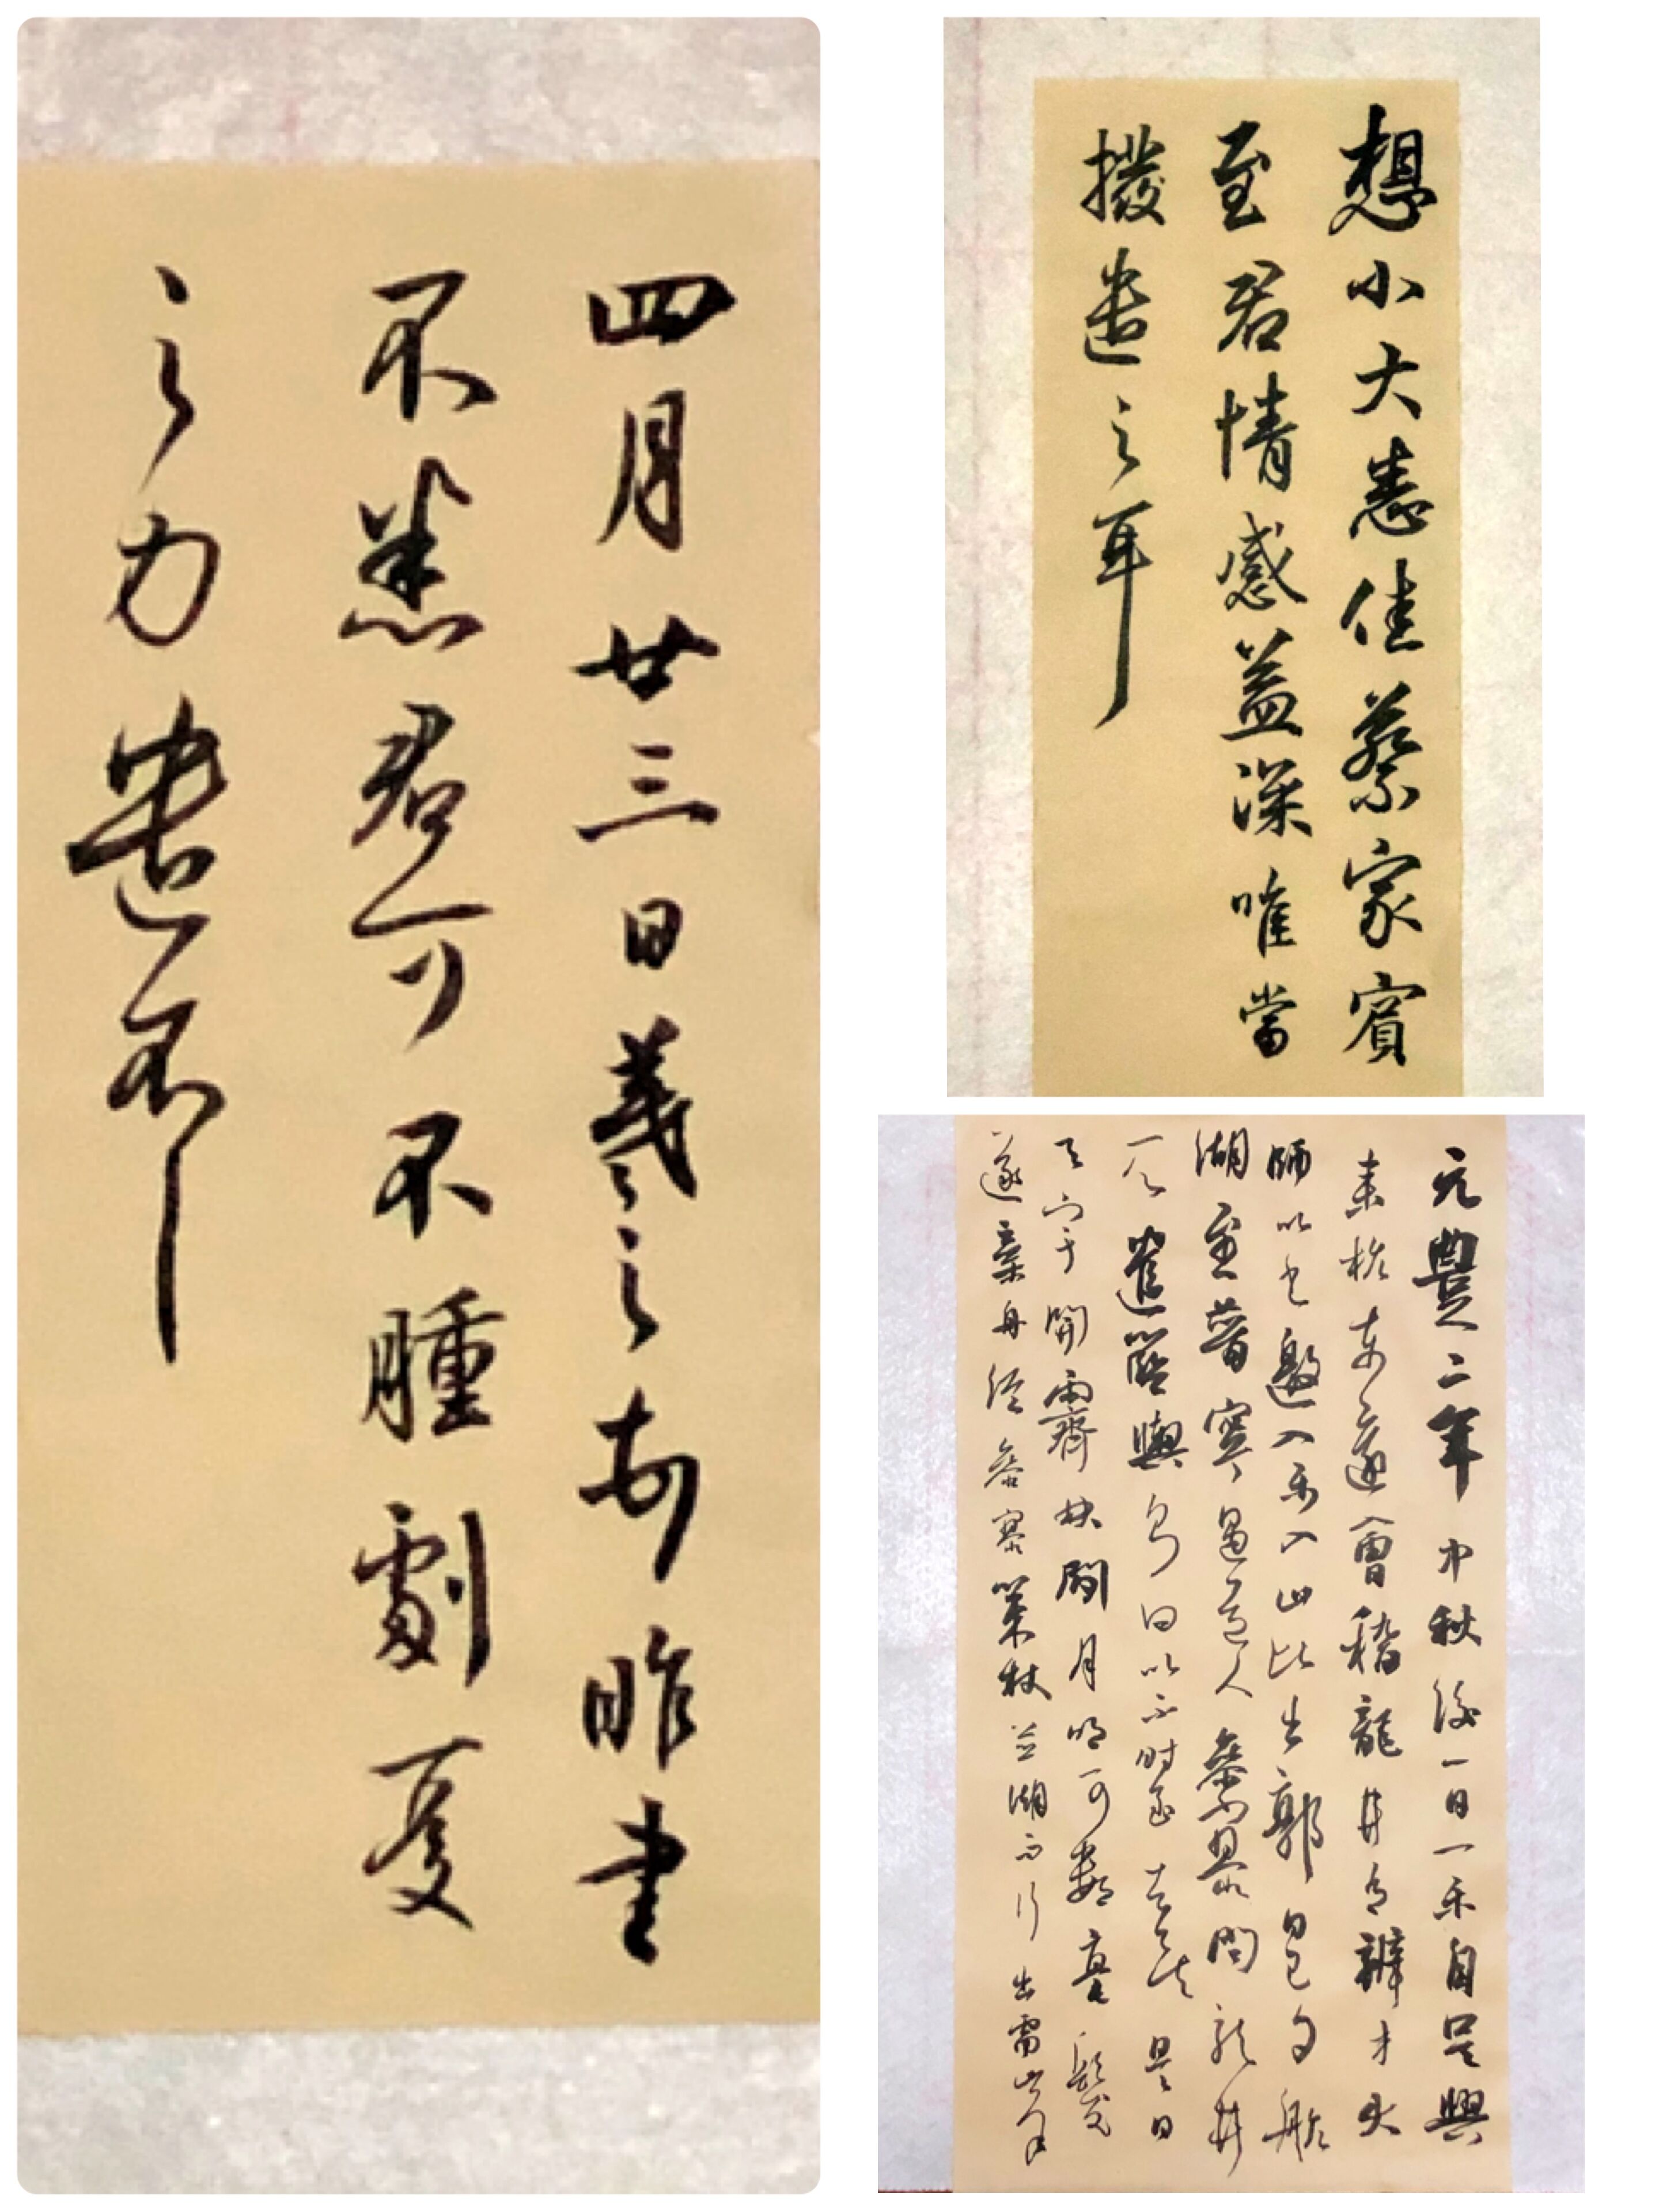 四月廿三日羲之 昨書
不悉君可不腫劇憂
之力遣不
想小大悉佳蔡家賓
至君情感益深唯當
撥遣之耳
元豐二年中秋後一日余自吳興
來杭東還會稽龍井有辨才大
師以書邀余入山比出郭日已夕航
湖至普寧遇道人參寥問龍井
所遣籃輿則曰以不時至去矣是日
天宇開霽林間月明可數毫髮
遂棄舟從參寥策杖並湖而行出雷峯